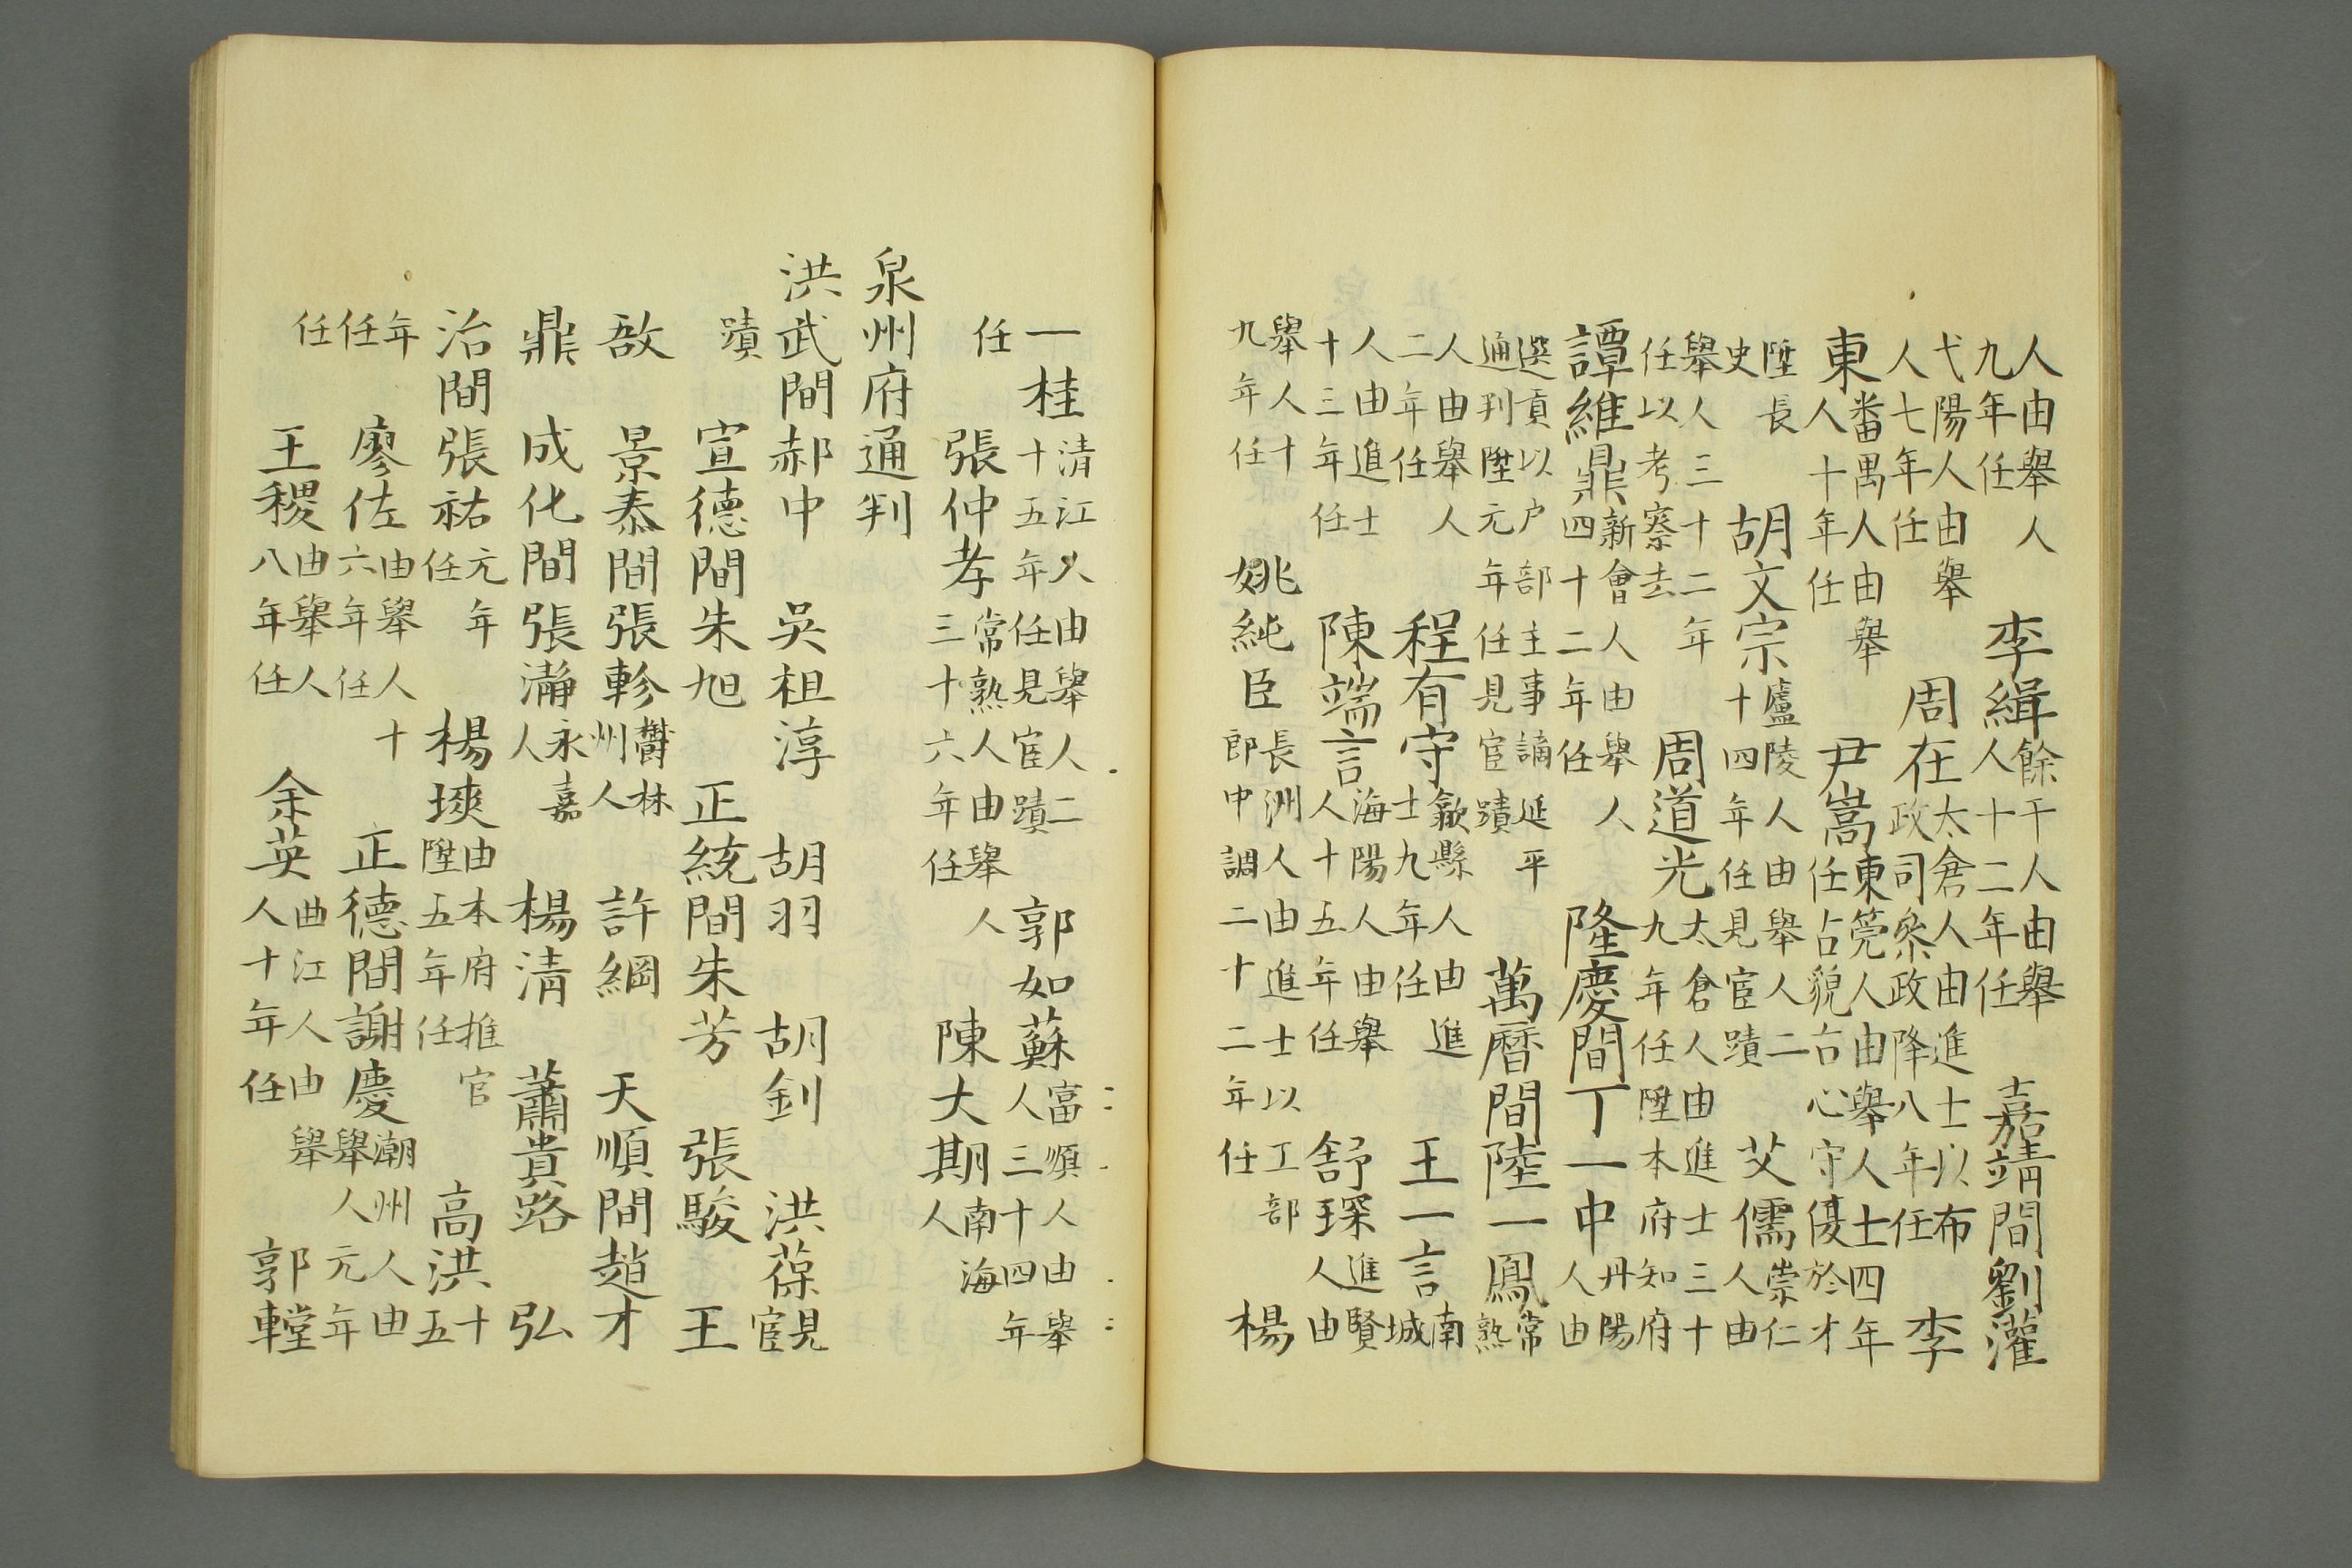 人由舉人九年任　李緝餘干人由舉人十二年任　嘉靖間劉灌
弋陽人由舉人七年任　周在太倉人由進士以布政司參政降八年任　李
東番禺人由舉人十年任　尹嵩東莞人由舉人士四年任占貌古心守優於才
陞長史　胡文宗廬陵人由舉人二十四年任見宦蹟　艾儒崇仁人由
舉人三十二年任以考察去　周道光太倉人由進士三十九年任陞本府知府
譚維鼎新會人由舉人四十二年任　隆慶間丁一中丹陽人由
選貢以户部主事謫延平通判陞元年任見宦蹟　萬曆間陸一鳳常熟
人由舉人二年任　程有守歙縣人由進士九年任　王一言南城
人由進士十三年任　陳端言海陽人由舉人十五年任　舒琛進賢人由
舉人十九年任　姚純臣長洲人由進士以工部郎中調二十二年任　楊
一桂清江人由舉人二十五年任見宦蹟　郭如蘇富順人由舉人三十四年
任　張仲孝常熟人由舉人三十六年任　陳大期南海人
泉州府通判
洪武間郝中　吳祖淳　胡羽　胡釗　洪葆見宦
蹟　宣德間朱旭　正統間朱芳　張駿　王
敔　景泰間張軫欝林州人　許綱　天順間趙才
鼎　成化間張瀞永嘉人　楊清　蕭貴路　弘
治間張祐元年任　楊㙪由本府推官陞五年任　高洪十五
年任　廖佐由舉人六年任　正德間謝慶潮州人由舉人元年
任　王稷由舉人八年任　余英曲江人由舉人十年任　郭䡫